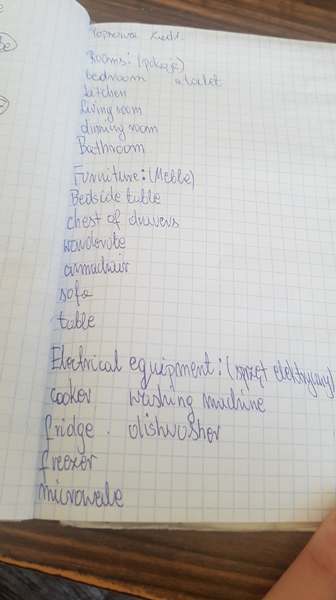 Poprawa kartk.
Rooms: (pokoje)
bedroom toilet
kitchen
living room
dinning room
Bathroom
Furniture: (Meble)
Bedside table
chest of drawers
wardrobe
armchair
sofa
table
Electrical equipment: (sprzęt elektryczny)
cooker washing machine
fridge . dishwasher
freezer
microwave